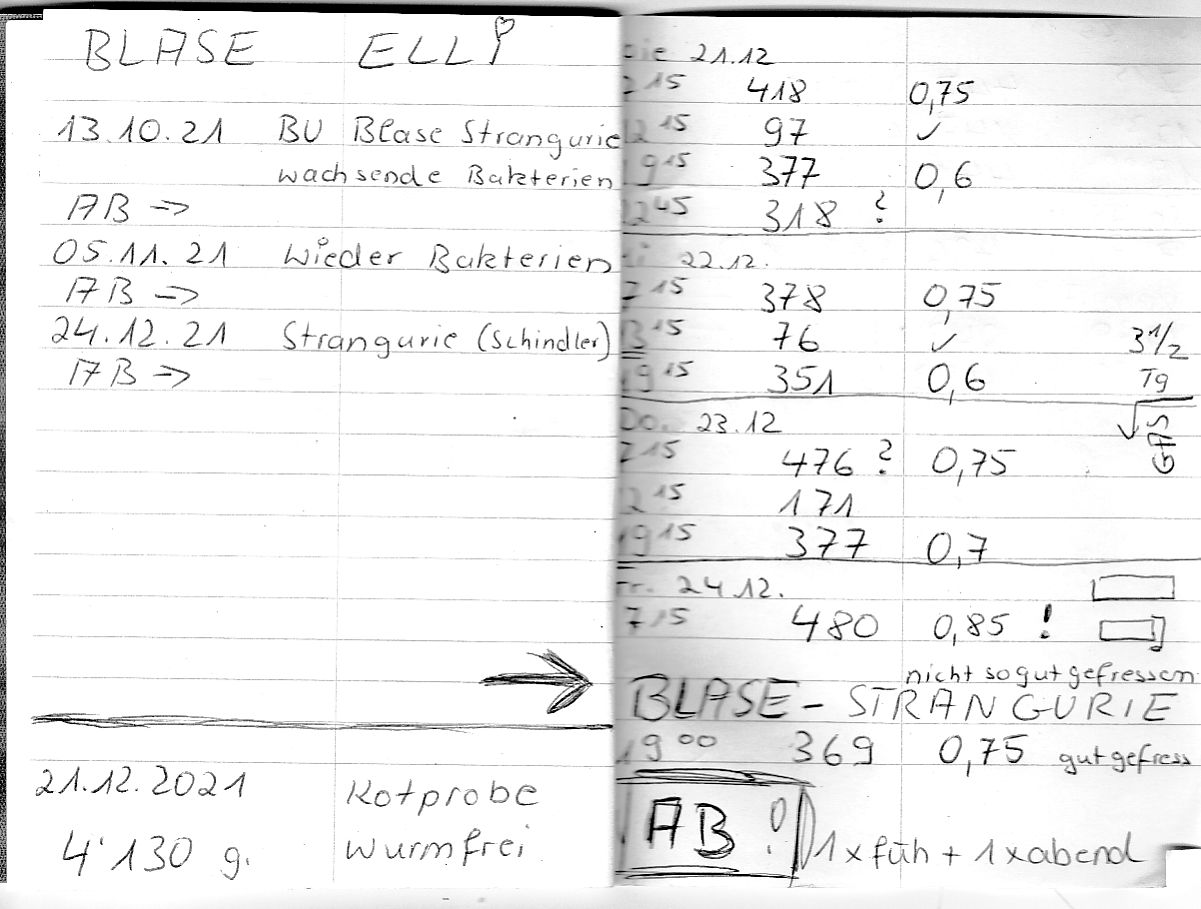 BLASE ELLI
13.10.21 BU Blase Strangurie
wachsende Bakterien
AB =>
05.11.21 Wieder Bakterien
AB =>
24.12.21 Strangurie (Schindler)
AB =>
21.12.2021 Kotprobe
4'130 g. Wurmfrei
Die 21.12
7 15 418 0,75
12 15 97 ✓
19 15 377 0,6
22 45 318 ?
Mi 22.12.
7 15 378 0,75
13 15 76 ✓ 3 1/2
19 15 351 0,6 Tg
Do. 23.12 GAS
7 15 476 ? 0,75
12 15 171
19 15 377 0,7
Fr. 24.12.
7 15 480 0,85 !
nicht so gut gefressen
BLASE - STRANGURIE
19 00 369 0,75 gut gefress
AB ! 1 x füh + 1 x abend